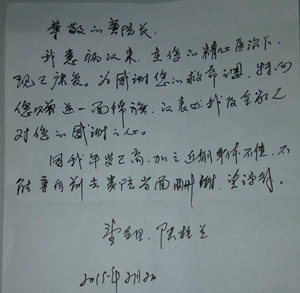 尊敬的黄院长：
我患病以来，在您的精心医治下，
现已康复。为感谢您的救命之恩，特向
您赠送一面锦旗，以表达我及全家人
对您的感谢之心。
因我年岁已高，加之近期身体不佳，不
能亲自前去贵院当面酬谢，望谅解。
陈桂兰
2015年2月2日